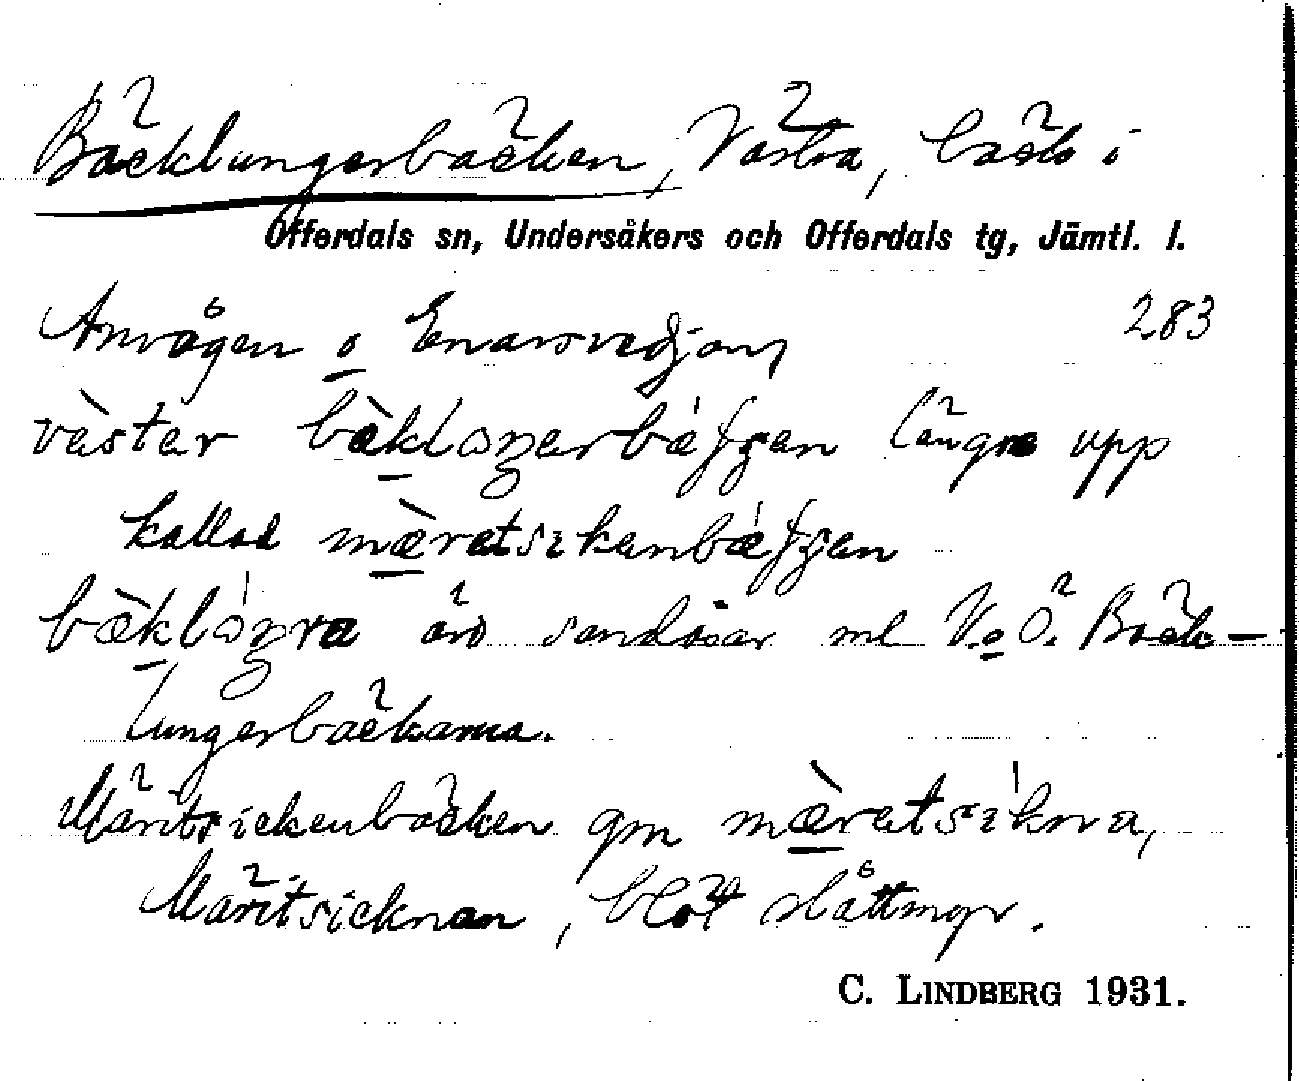 Bäcklungerbäcken, Västra, bäck i
Offerdals sn, Undersåkers och Offerdals tg, Jämtl. l.
Änvågen o Enarsvedjan, 283
vèster bæ̀klongerbékjen längre upp
kallad mæ̀retsikenbékjen
bæ̀klóngra äro sandåsar ml V. o Ö. Bäck-
lungerbäckarna.
Märitsickenbäcken gm mæ̀retsíkna,
Märitsicknan, blöt slåttmyr.
C. LINDBERG 1931.